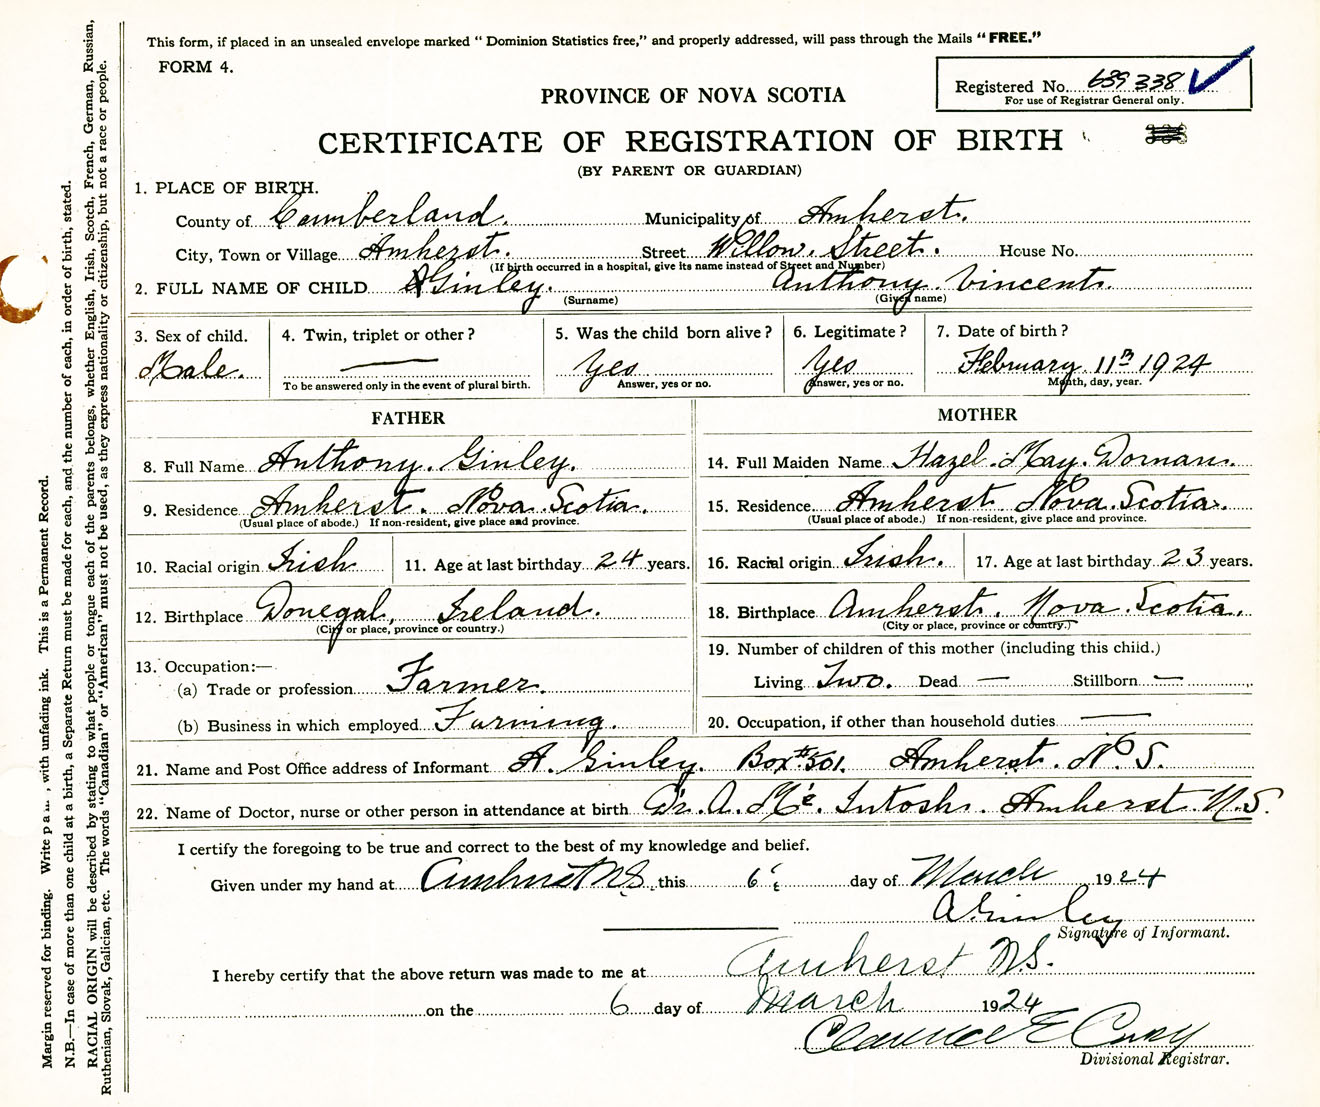 This form, if placed in an unsealed envelope marked " Dominion Statistics free," and properly addressed, will pass through the Mails "FREE."
FORM 4.
Registered No. 639 338
For use of Registrar General only.
PROVINCE OF NOVA SCOTIA
CERTIFICATE OF REGISTRATION OF BIRTH
(BY PARENT OR GUARDIAN)
1. PLACE OF BIRTH.
County of Cumberland. Municipality of Amherst.
City, Town or Village Amherst. Street Willow. Street. House No.
(If birth occurred in a hospital, give its name instead of Street and Number)
2. FULL NAME OF CHILD Ginley. Anthony Vincent.
(Surname) (Given name)
3. Sex of child. 4. Twin, triplet or other? 5. Was the child born alive? 6. Legitimate? 7. Date of birth?
Male. — Yes Yes February 11th 1924
To be answered only in the event of plural birth. Answer, yes or no. Answer, yes or no. Month, day, year.
FATHER MOTHER
8. Full Name Anthony. Ginley. 14. Full Maiden Name Hazel. May. Dornan.
9. Residence Amherst. Nova Scotia. 15. Residence Amherst Nova Scotia.
(Usual place of abode.) If non-resident, give place and province. (Usual place of abode.) If non-resident, give place and province.
10. Racial origin Irish 11. Age at last birthday 24 years. 16. Racial origin Irish. 17. Age at last birthday 23 years.
12. Birthplace Donegal, Ireland. 18. Birthplace Amherst. Nova Scotia.
(City or place, province or country.) (City or place, province or country.)
13. Occupation:— 19. Number of children of this mother (including this child.)
(a) Trade or profession Farmer. Living Two. Dead — Stillborn —
(b) Business in which employed Farming. 20. Occupation, if other than household duties —
21. Name and Post Office address of Informant A. Ginley. Box # 501. Amherst. N. S.
22. Name of Doctor, nurse or other person in attendance at birth Dr. A. Mc. Intosh. Amherst N.S.
I certify the foregoing to be true and correct to the best of my knowledge and belief.
Given under my hand at Amherst N.S. this 6 day of March 1924
A Ginley
Signature of Informant.
I hereby certify that the above return was made to me at Amherst N.S.
on the 6 day of March 1924
Clarence E
Divisional Registrar.
Margin reserved for binding. Write , with unfading ink. This is a Permanent Record.
N.B.—In case of more than one child at a birth, a Separate Return must be made for each, and the number of each, in order of birth, stated.
RACIAL ORIGIN will be described by stating to what people or tongue each of the parents belongs, whether English, Irish, Scotch, French, German, Russian,
Ruthenian, Slovak, Galician, etc. The words "Canadian" or "American" must not be used, as they express nationality or citizenship, but not a race or people.